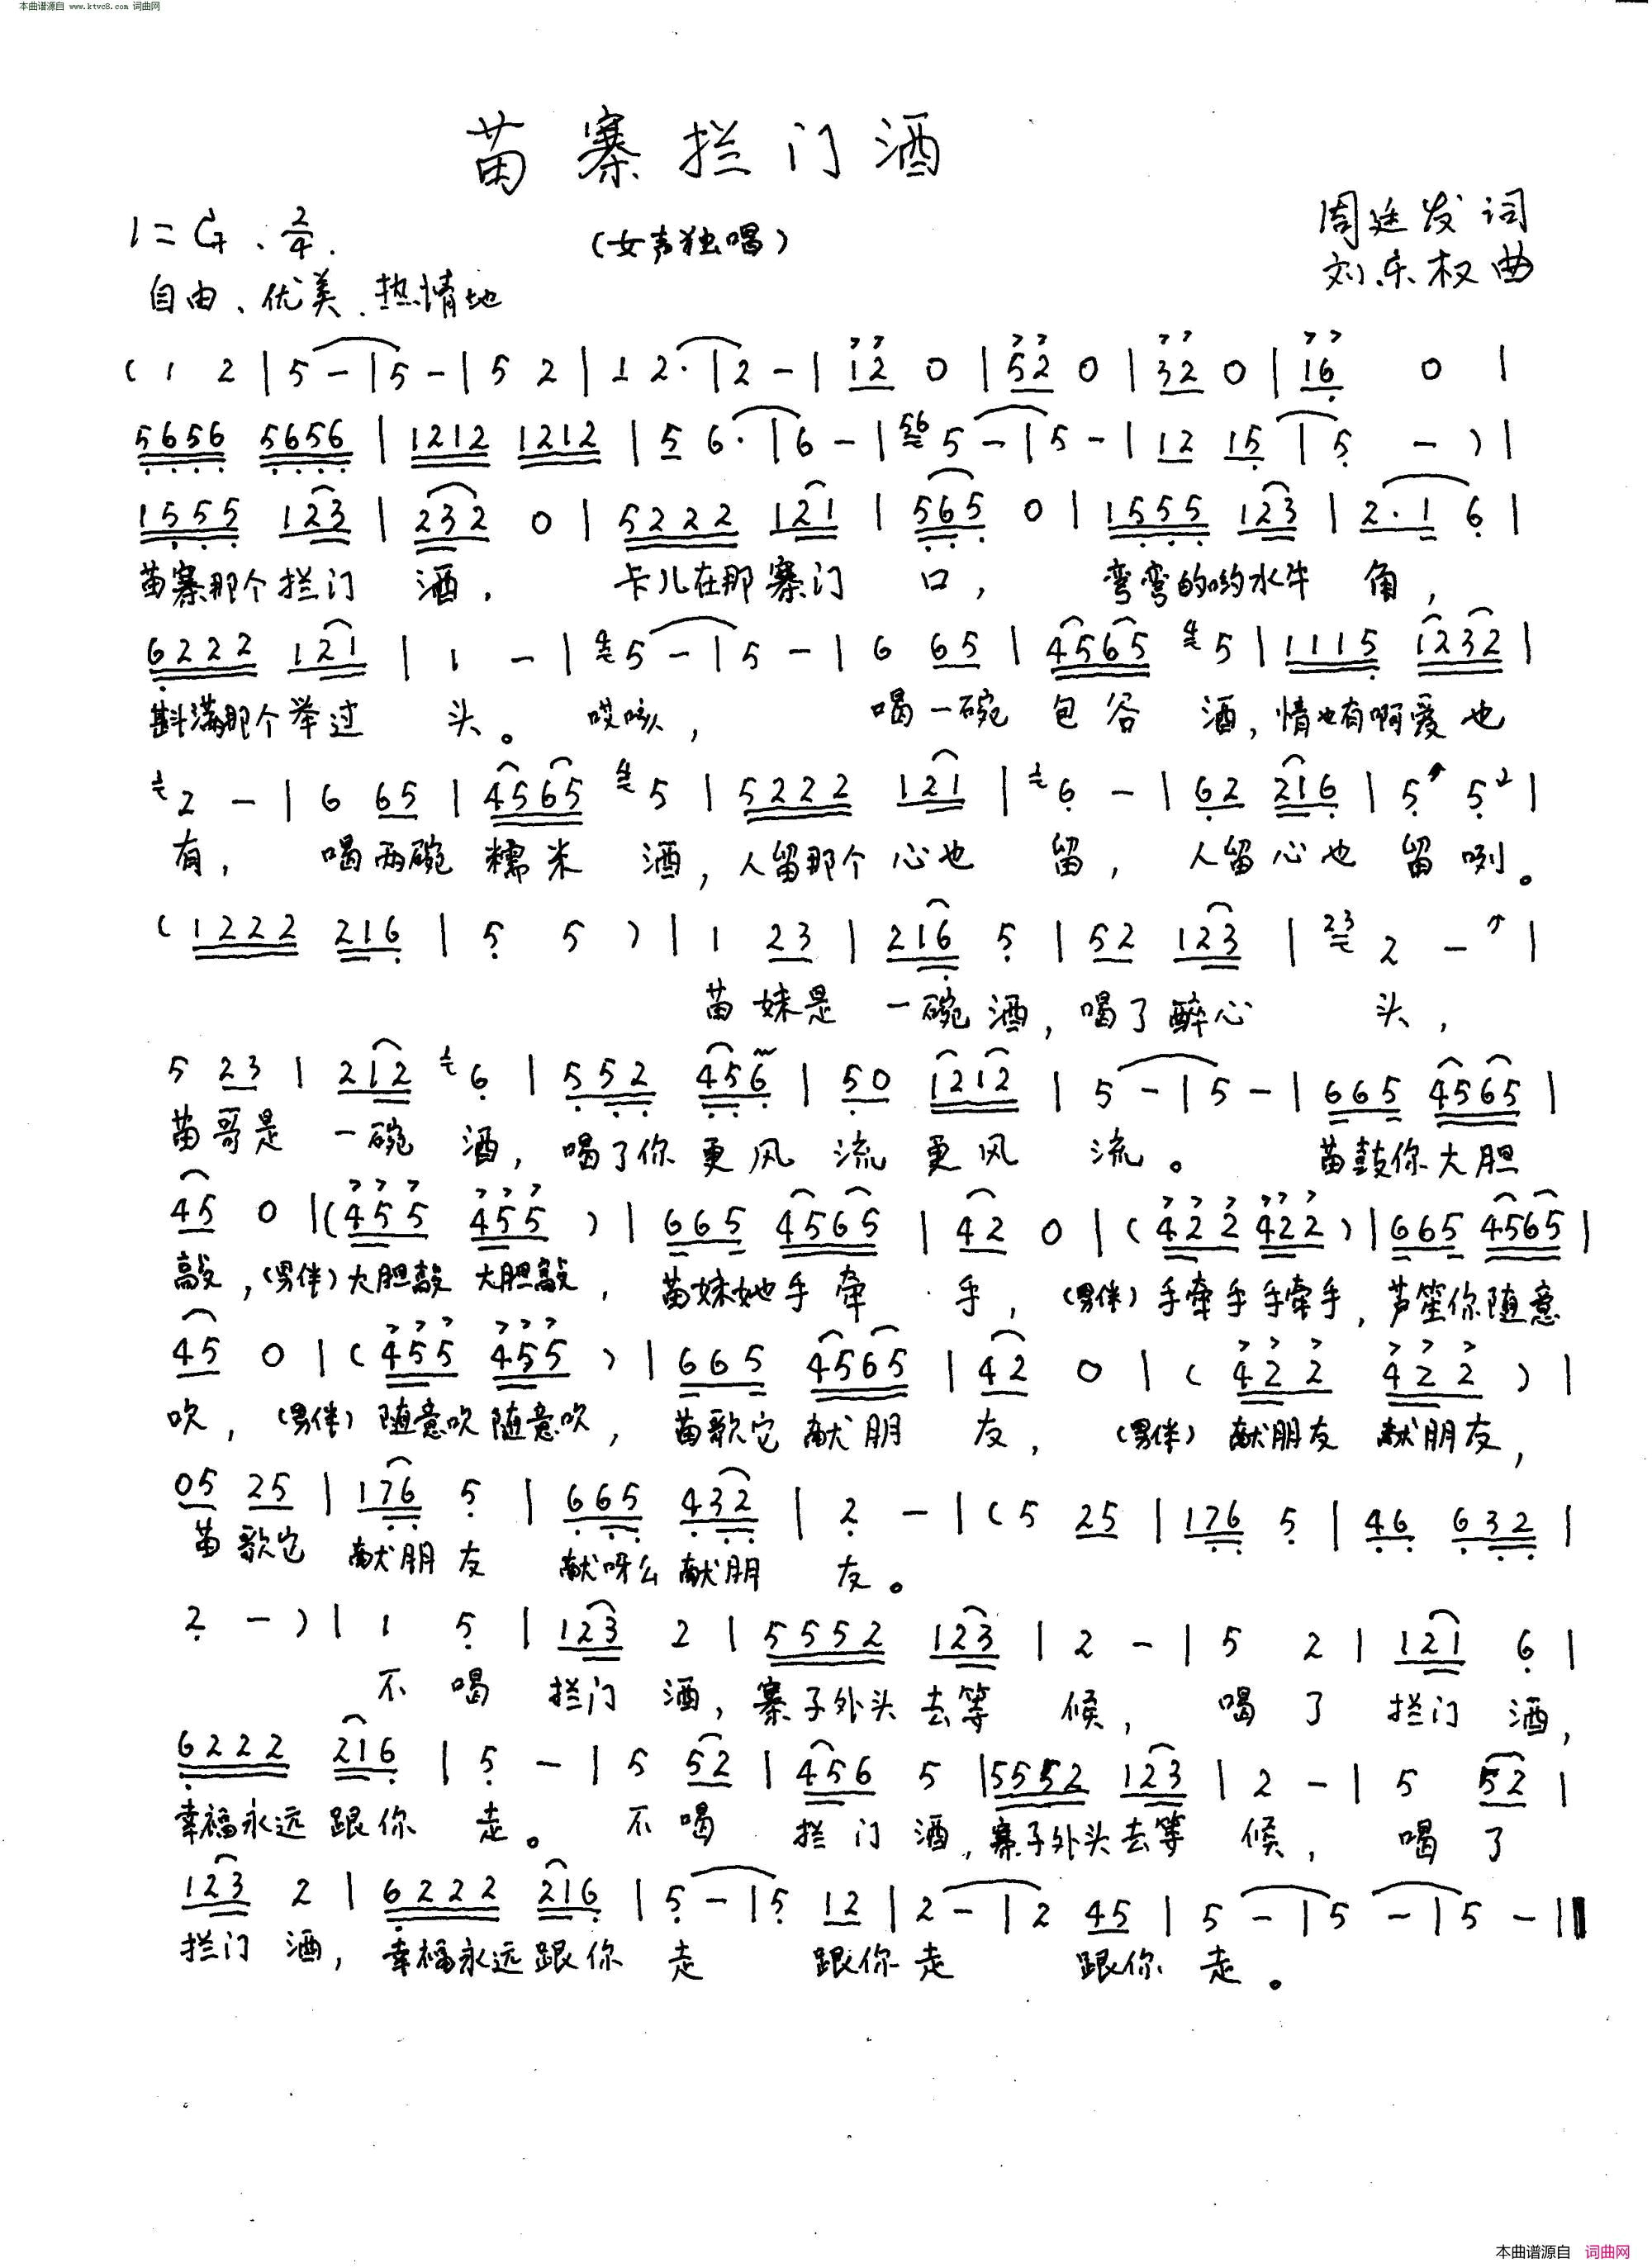 本曲谱源自 www.ktvc8.com 词曲网
苗寨拦门酒
1=G、2/4.
(女声独唱)
周廷发词
自由、优美、热情地
刘乐权曲
(1 2|5-|5-|5 2|1 2·|2-|12 0|52 0|32 0|16 0|
5656 5656|1212 1212|5 6·|6-|56 5-|5-|12 15|5 -)|
1555 123|232 0|5222 121|565 0|1555 123|2·1 6|
苗寨那个拦门 酒, 卡儿在那寨门 口, 弯弯的哟水牛 角,
6222 121|1 -|5-|5-|6 65|4565 5|1115 1232|
斟满那个举过 头。 哎咳, 喝一碗 包谷 酒,情也有啊爱也
2 -|6 65|4565 5|5222 121|6 -|62 216|5 5|
有, 喝两碗 糯米 酒,人留那个心也 留, 人留心也 留咧。
(1222 216|5 5)|1 23|216 5|52 123|23 2 -|
苗妹是 一碗酒,喝了醉心 头,
5 23|212 6|552 456|50 1212|5-|5-|665 4565|
苗哥是 一碗 酒,喝了你更风 流更风 流。 苗鼓你大胆
45 0|(455 455)|665 4565|42 0|(422 422)|665 4565|
敲,(男伴)大胆敲 大胆敲, 苗妹她手牵 手,(男伴)手牵手手牵手,芦笙你随意
45 0|(455 455)|665 4565|42 0|(422 422)|
吹,(男伴)随意吹随意吹, 苗歌它献朋 友,(男伴)献朋友 献朋友,
05 25|176 5|665 432|2 -|(5 25|176 5|46 632|
苗歌它 献朋友 献呀么献朋 友。
2 -)|1 5|123 2|5552 123|2 -|5 2|121 6|
不 喝 拦门 酒,寨子外头去等 候, 喝 了 拦门 酒,
6222 216|5 -|5 52|456 5|5552 123|2 -|5 52|
幸福永远跟你 走。 不喝 拦门 酒,寨子外头去等 候, 喝了
123 2|6222 216|5-|5 12|2-|2 45|5-|5-|5-||
拦门 酒,幸福永远跟你 走 跟你走 跟你走。
本曲谱源自 词曲网